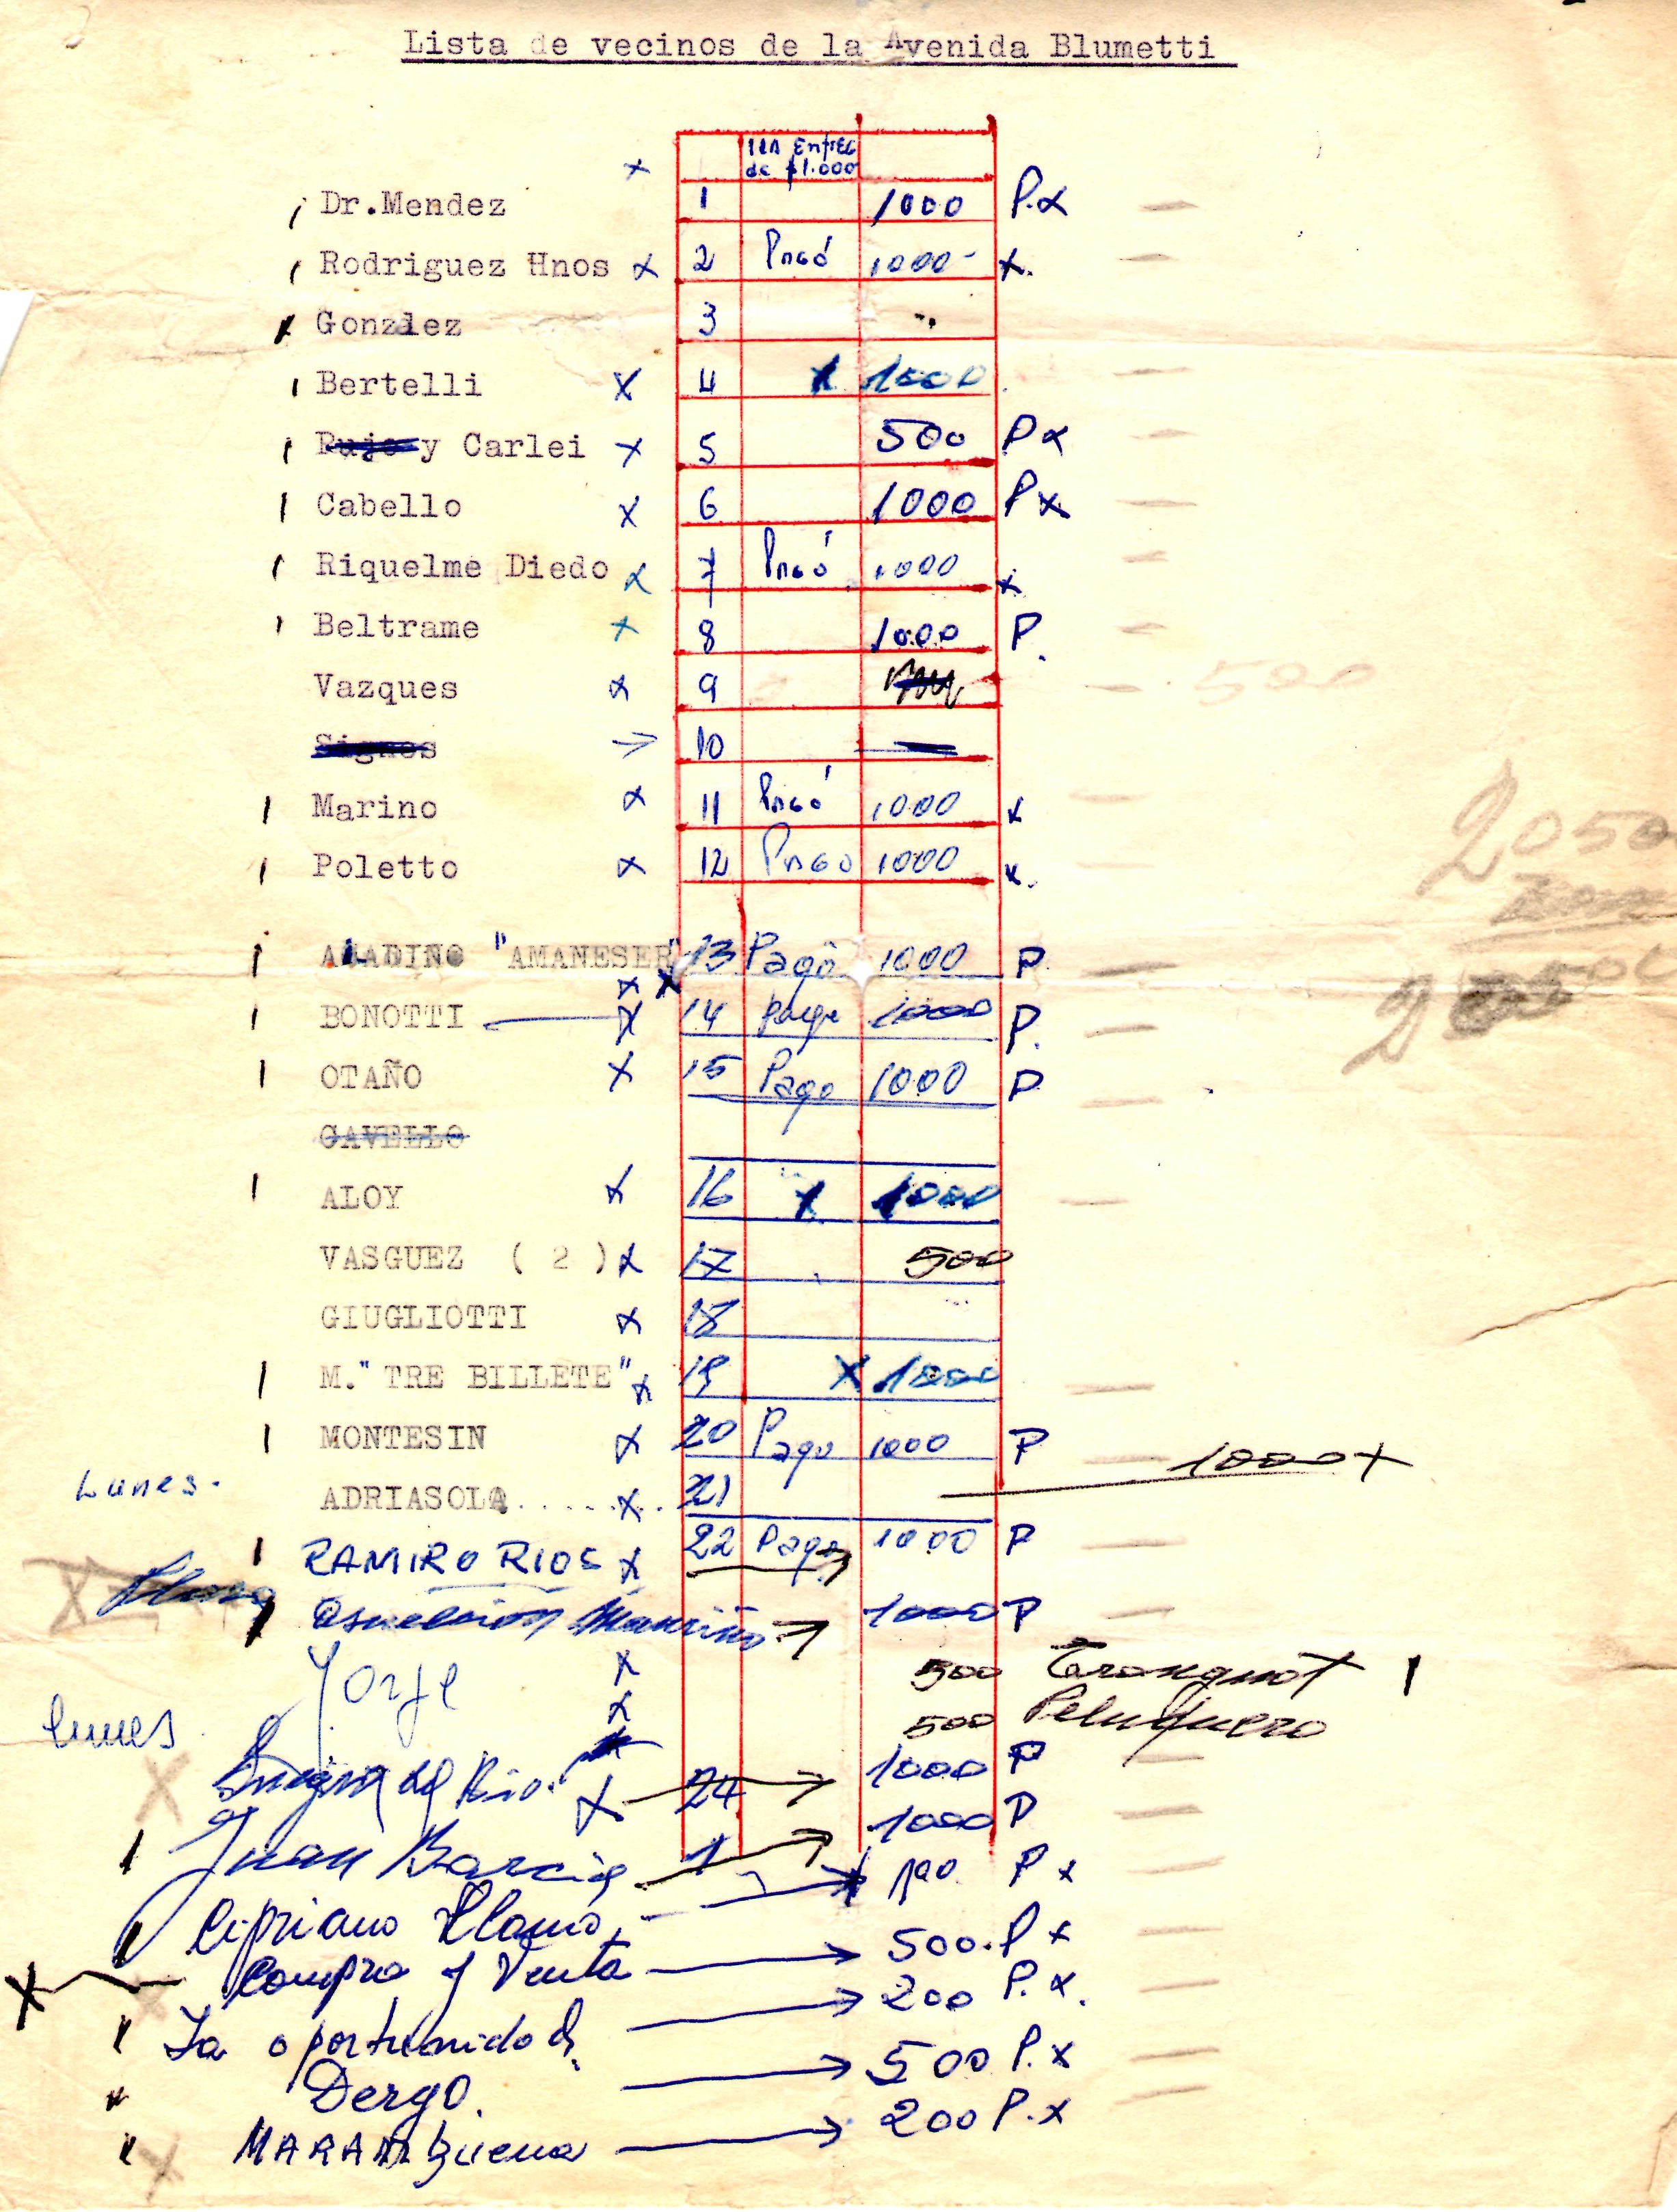 Lista de vecinos de la Avenida Blumetti
1RA Entreg
de $1.000
Dr.Mendez 1 1000 P.x
Rodriguez Hnos x 2 Pagó 1000- x.
Gonzlez 3
Bertelli x 4 x 1000
Pujo y Carlei x 5 500 Px
Cabello x 6 1000 Px
Riquelme Diedo x 7 Pagó 1000 x
Beltrame x 8 1000 P.
Vazques x 9 500
Signes 10
Marino x 11 Pagó 1000 x
Poletto x 12 Pago 1000 x.
2050
ALADINO "AMANESER" 13 Pagó 1000 P
BONOTTI x 14 page 1000 P.
OTAÑO x 15 Pago 1000 P
GAVELLO
ALOY x 16 x 1000
VASGUEZ ( 2 ) x 17 500
GIUGLIOTTI x 18
M." TRE BILLETE" x 19 x 1000
MONTESIN x 20 Pago 1000 P
Lunes. ADRIASOLA..... x. 21 1000 x
RAMIRO RIOS x 22 Pago 1000 P
1000 P
Yorje x 500
lunes x 500 Peluquero
x 24 1000 P
Juan Garcia 1 1000 P
Cipriano Llamo P x
Compra y Venta 500. P x
La oportunidad 200 P. x.
Dergo. 500 P. x
MARAMbuena 200 P. x